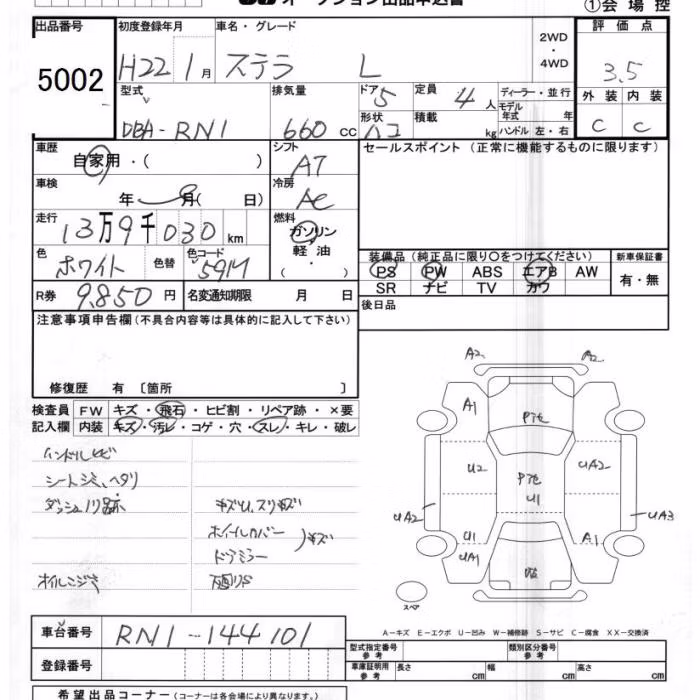 オークション出品申込書 ①会場控
出品番号 初度登録年月 車名・グレード 2WD・4WD 評価点
5002 H22 1月 ステラ L 3.5
型式 排気量 ドア 5 定員 4人 ディーラー・並行 外装 内装
DBA-RN1 660cc 形状 ハコ 積載 kg モデル年式 年 ハンドル 左・右 C C
車歴 自家用・( ) シフト AT セールスポイント(正常に機能するものに限ります)
車検 年 月( 日) 冷房 AC
走行 13万9千030km 燃料 ガソリン・軽油・
色 ホワイト 色替 色コード 591M 装備品(純正品に限り○をつけてください) 新車保証書
PS PW ABS エアB AW 有・無
SR ナビ TV カワ
R券 9.850円 名変通知期限 月 日 後日品
注意事項申告欄(不具合内容等は具体的に記入して下さい)
修復歴 有 [箇所 ]
検査員 FW キズ・飛石・ヒビ割・リペア跡・×要
記入欄 内装 キズ・汚レ・コゲ・穴・スレ・キレ・破レ
ハンドルヒビ
シートシミ、ヘタリ
ダッシュノリ跡 キズU、スリキズ
ホイールカバー
ドアミラー )キズ
オイルニジミ 下廻りS
A2 A2
A1
U2 UA2
U1
UA2 UA3
U1 A1
UA1
スペア
A-キズ E-エクボ U-凹み W-補修跡 S-サビ C-腐食 XX-交換済
車台番号 RN1-144101 型式指定番号 参考 類別区分番号 参考
登録番号 車庫証明用 参考 長さ cm 幅 cm 高さ cm
希望出品コーナー(コーナーは各会場により異なります。)